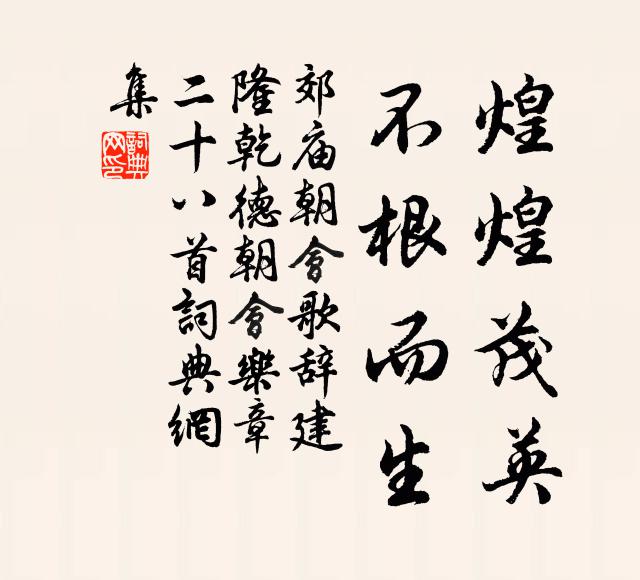 煌煌茂英
不根而生
郊庙朝會歌辞建
隆乾德朝會樂章
二十八首詞典網
集
詞典网印